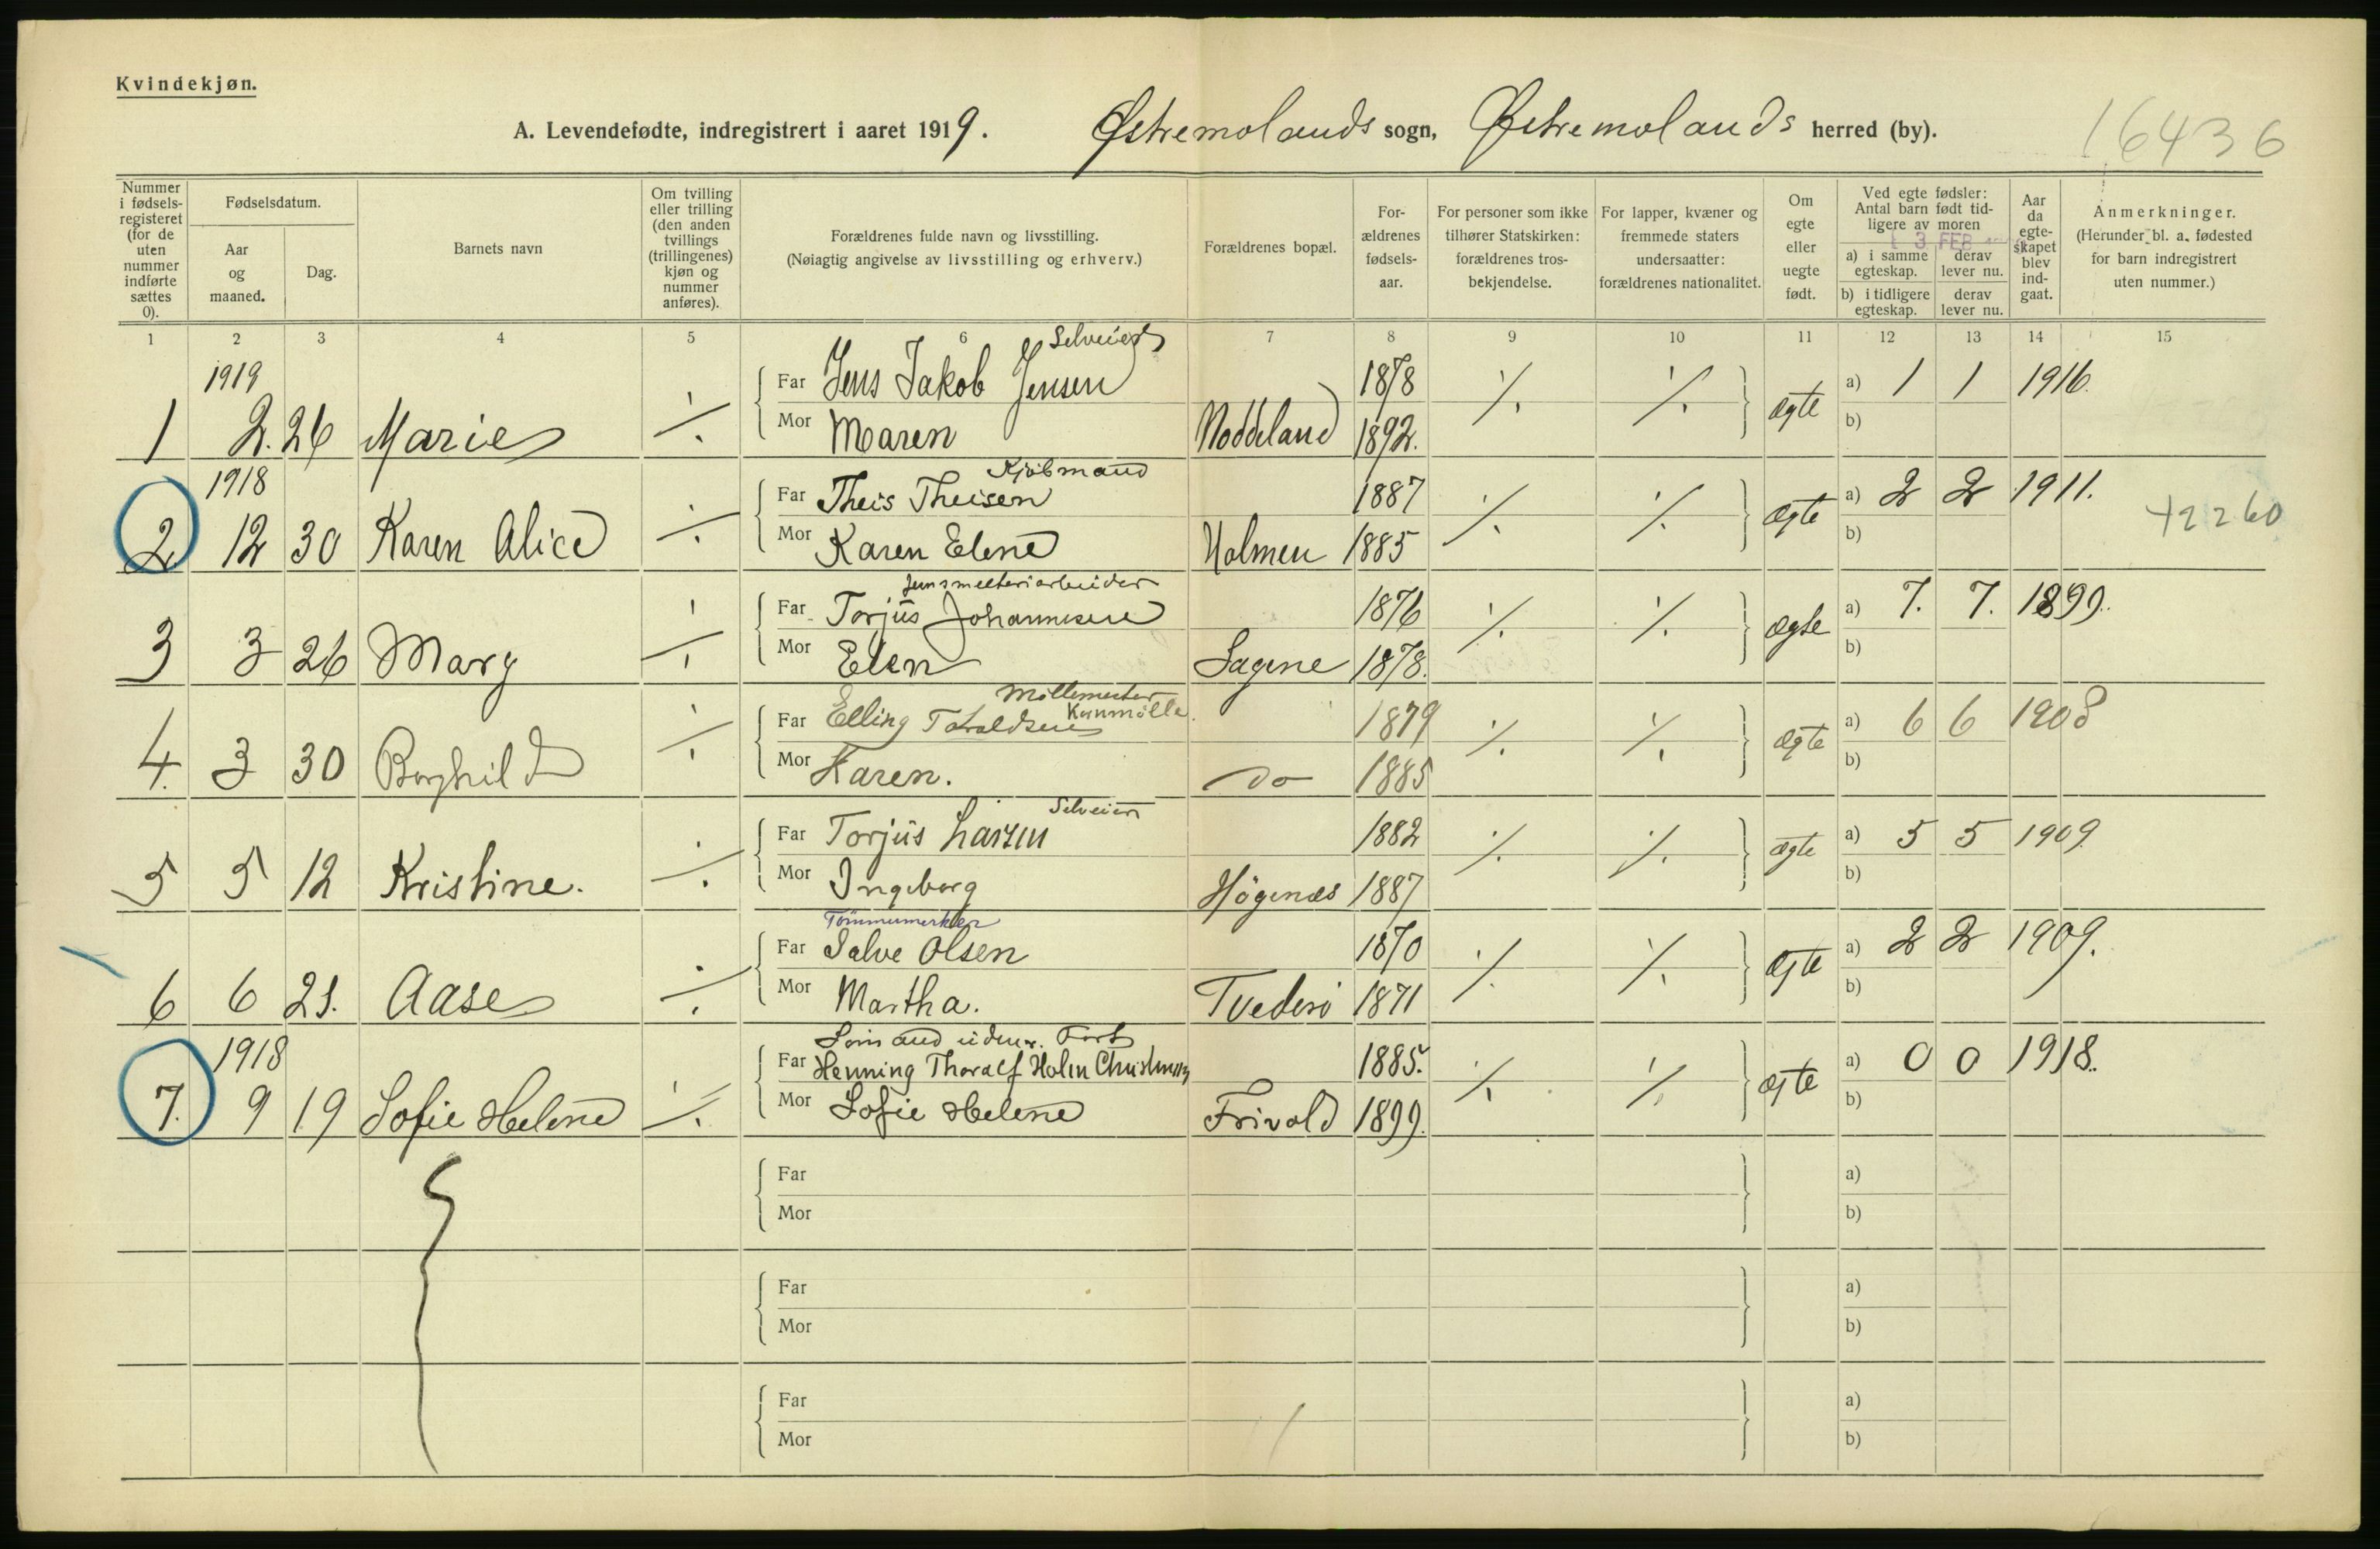 Kvindekjøn.
A. Levendefødte, indregistrert i aaret 1919. Østremolands sogn, Østremolands herred (by). 16436
Nummer i fødsels-registeret (for de uten nummer indførte sættes 0).
Fødselsdatum.
Aar og maaned.
Dag.
Barnets navn
Om tvilling eller trilling (den anden tvillings (trillingenes) kjøn og nummer anføres).
Forældrenes fulde navn og livsstilling.
(Nøiagtig angivelse av livsstilling og erhverv.)
Forældrenes bopæl.
For-ældrenes fødsels-aar.
For personer som ikke tilhører Statskirken: forældrenes tros-bekjendelse.
For lapper, kvæner og fremmede staters undersaatter: forældrenes nationalitet.
Om egte eller uegte født.
Ved egte fødsler: Antal barn født tid-ligere av moren
3 FEB
a) i samme egteskap. derav lever nu.
b) i tidligere egteskap. derav lever nu.
Aar da egte-skapet blev ind-gaat.
Anmerkninger.
(Herunder bl. a. fødested for barn indregistrert uten nummer.)
1 2 3 4 5 6 7 8 9 10 11 12 13 14 15
1919 Selveier
Far Jens Jakob Jensen 1878 a) 1 1 1916.
1 2. 26 Marie ÷ Mor Maren Noddeland 1892. ./. ./. ægte b)
1918 Kjøbmand
Far Theis Theisen 1887 a) 2 2 1911.
2 12 30 Karen Alice ÷ Mor Karen Elene Holmen 1885 ./. ./. ægte b) +2260
Far Torjus Johannesen 1876 a) 7. 7. 1899.
3 3 26 Mary ÷ Mor Elen Sagene 1878. ./. ./. ægte b)
Møllemester
Far Elling Taraldsen 1879 a) 6 6 1908
4. 3 30 Borghild ÷ Mor Karen. do 1885 ./. ./. ægte b)
Selveier
Far Torjus Larsen 1882 a) 5 5 1909
5 5 12 Kristine. ÷ Mor Ingeborg Høgenæs 1887 ./. ./. ægte b)
Far Salve Olsen 1870 a) 2 2 1909.
6 6 21. Aase ÷ Mor Martha. Tvederø 1871 ./. ./. ægte b)
1918 Sømand udenr. Fart
Far Henning Thoralf Holm Christensen 1885. a) 0 0 1918.
7. 9 19 Sofie Helene ÷ Mor Sofie Helene Frivold 1899. ./. ./. ægte b)
Far a)
Mor b)
Far a)
Mor b)
Far a)
Mor b)